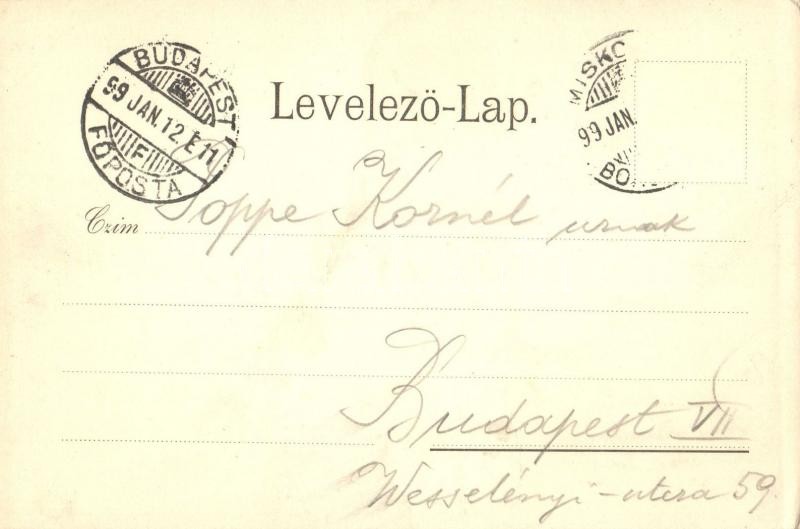 BUDAPEST
99 JAN. 12 E 11
F
FŐPOSTA
Levelezö-Lap.
MISKO
99 JAN.
BO
Czim Poppe Kornél urnak
Budapest VII
Wesselényi-utcza 59.